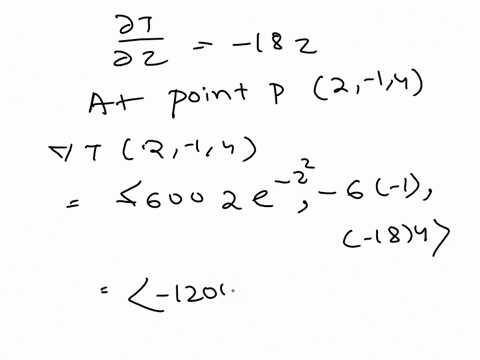 ∂T/∂z = -18z
At point P (2,-1,4)
∇T (2,-1,4)
= <600 2 e^-2^2, -6(-1),
(-18)4>
= <-120